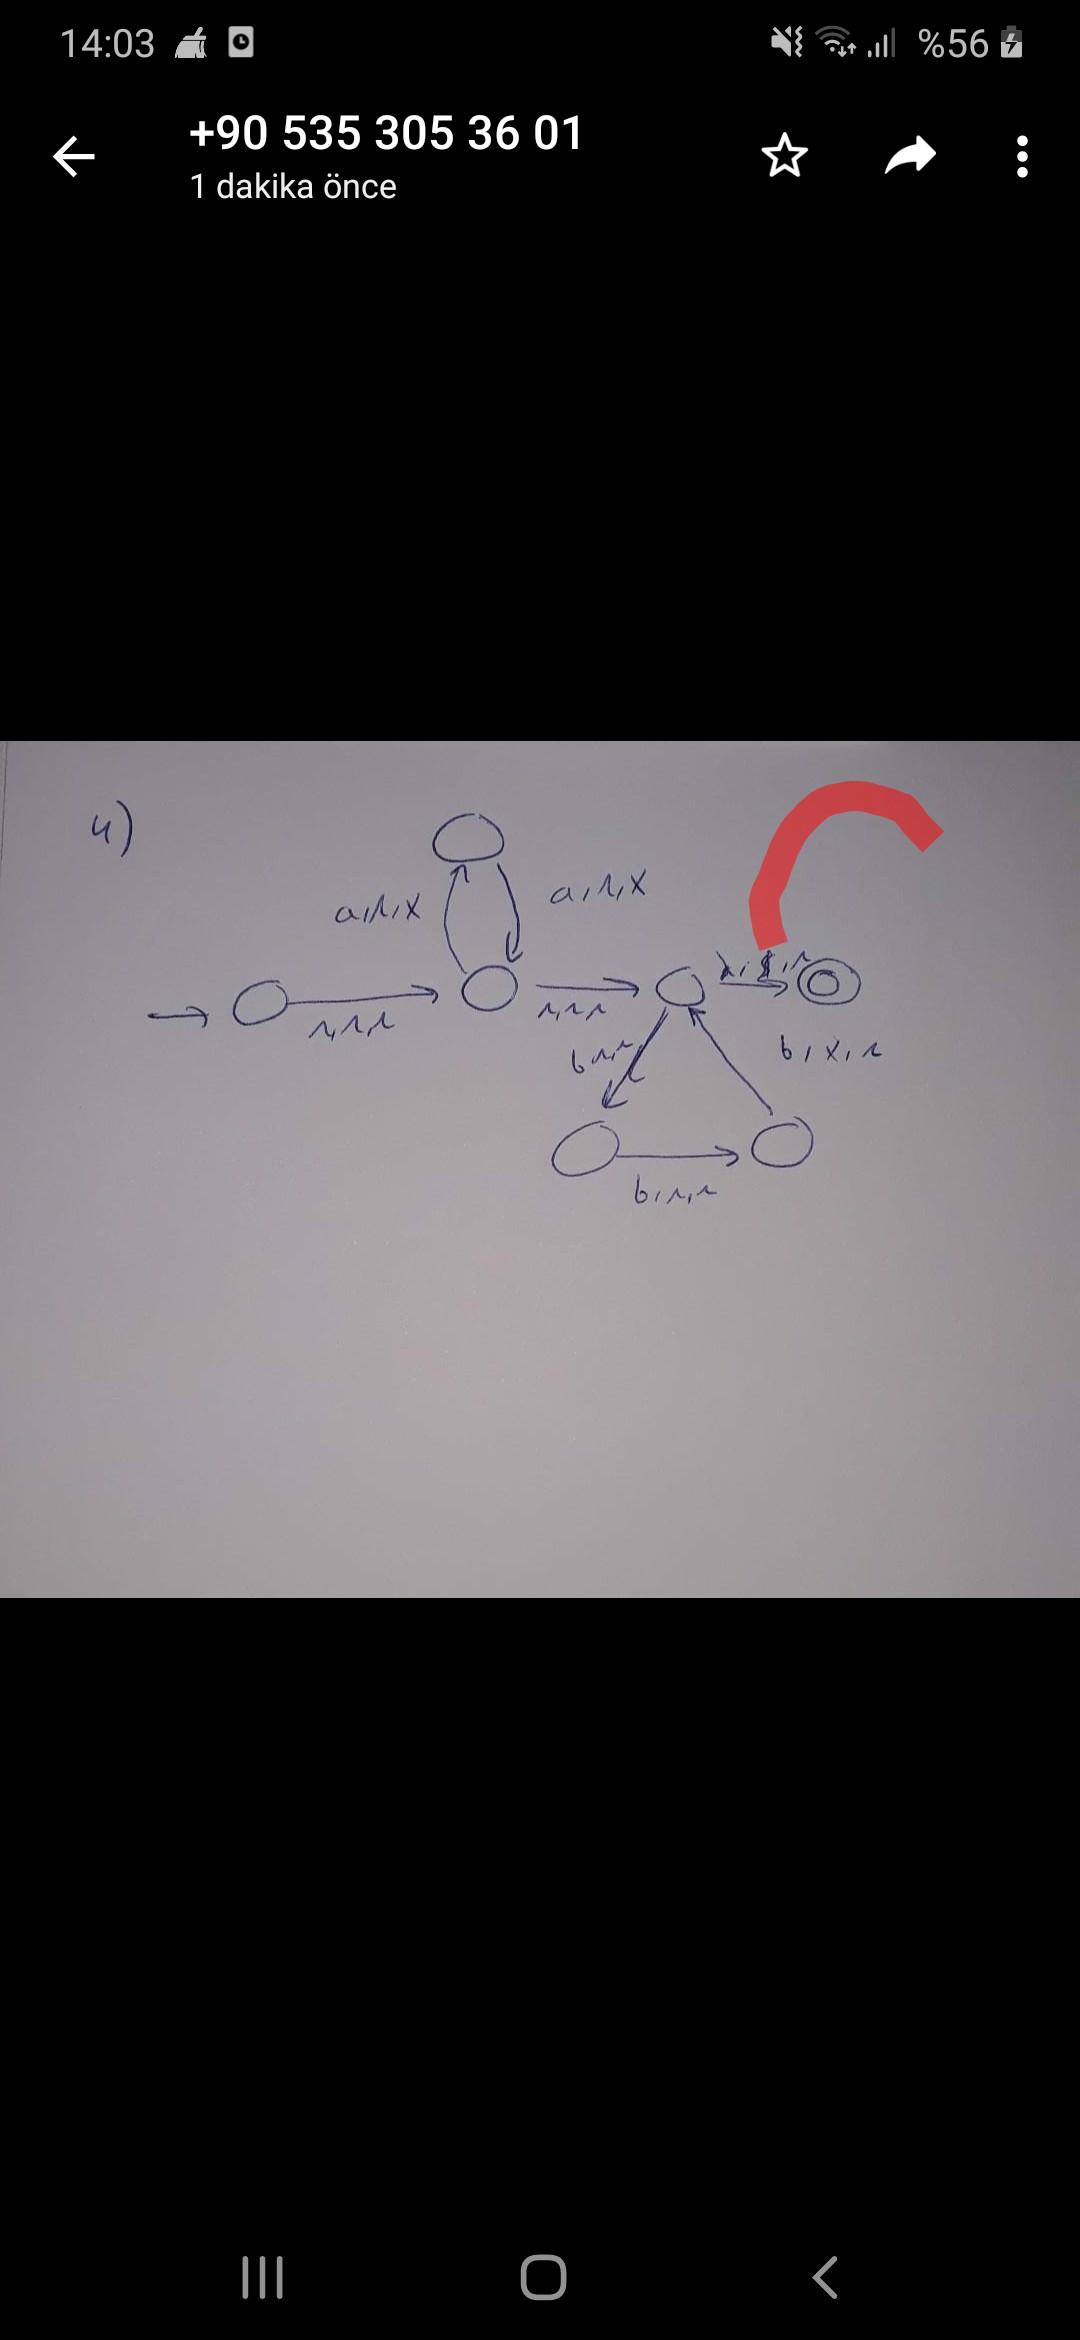 14:03
%56
+90 535 305 36 01
1 dakika önce
4)
a,λ,x
a,λ,x
λ,λ,λ
λ,λ,λ
b,x,λ
b,λ,λ